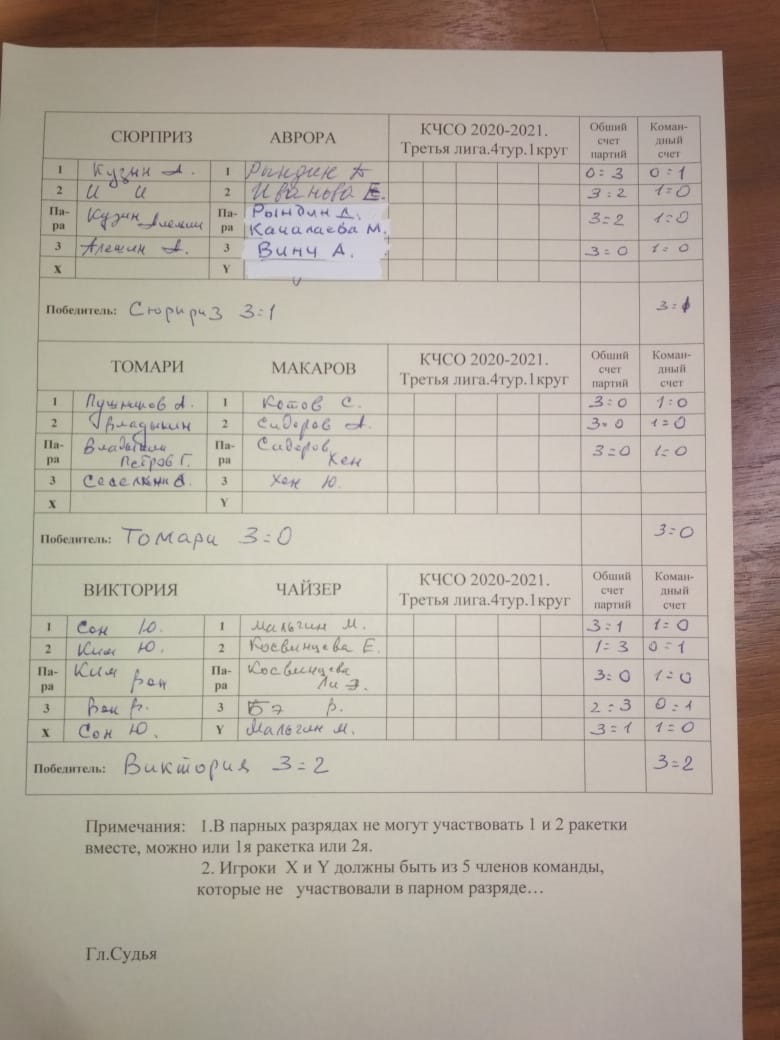 СЮРПРИЗ АВРОРА КЧСО 2020-2021. Третья лига.4тур.1круг Общий счет партий Коман-дный счет
1 Кузин А. 1 Рындин 0=3 0=1
2 И И 2 Иванова Е. 3=2 1=0
Па-ра Кузин Алехин Па-ра Рындин А. Качалаева М. 3=2 1=0
3 Алехин А. 3 Винч А. 3=0 1=0
X Y
Победитель: Сюрприз 3=1 3=1
ТОМАРИ МАКАРОВ КЧСО 2020-2021. Третья лига.4тур.1круг Общий счет партий Коман-дный счет
1 А. 1 Котов С. 3=0 1=0
2 Владыкин 2 Сидоров А. 3=0 1=0
Па-ра Владыкин Петров Г. Па-ра Сидоров Хен 3=0 1=0
3 3 Хен Ю.
X Y
Победитель: Томари 3=0 3=0
ВИКТОРИЯ ЧАЙЗЕР КЧСО 2020-2021. Третья лига.4тур.1круг Общий счет партий Коман-дный счет
1 Сон Ю. 1 Мальгин М. 3=1 1=0
2 Ким Ю. 2 Косвинцева Е. 1=3 0=1
Па-ра Ким Па-ра Косвинцева Ли Э. 3=0 1=0
3 3 Бэ В. 2=3 0=1
X Сон Ю. Y Мальгин М. 3=1 1=0
Победитель: Виктория 3=2 3=2
Примечания: 1.В парных разрядах не могут участвовать 1 и 2 ракетки
вместе, можно или 1я ракетка или 2я.
2. Игроки X и Y должны быть из 5 членов команды,
которые не участвовали в парном разряде…
Гл.Судья